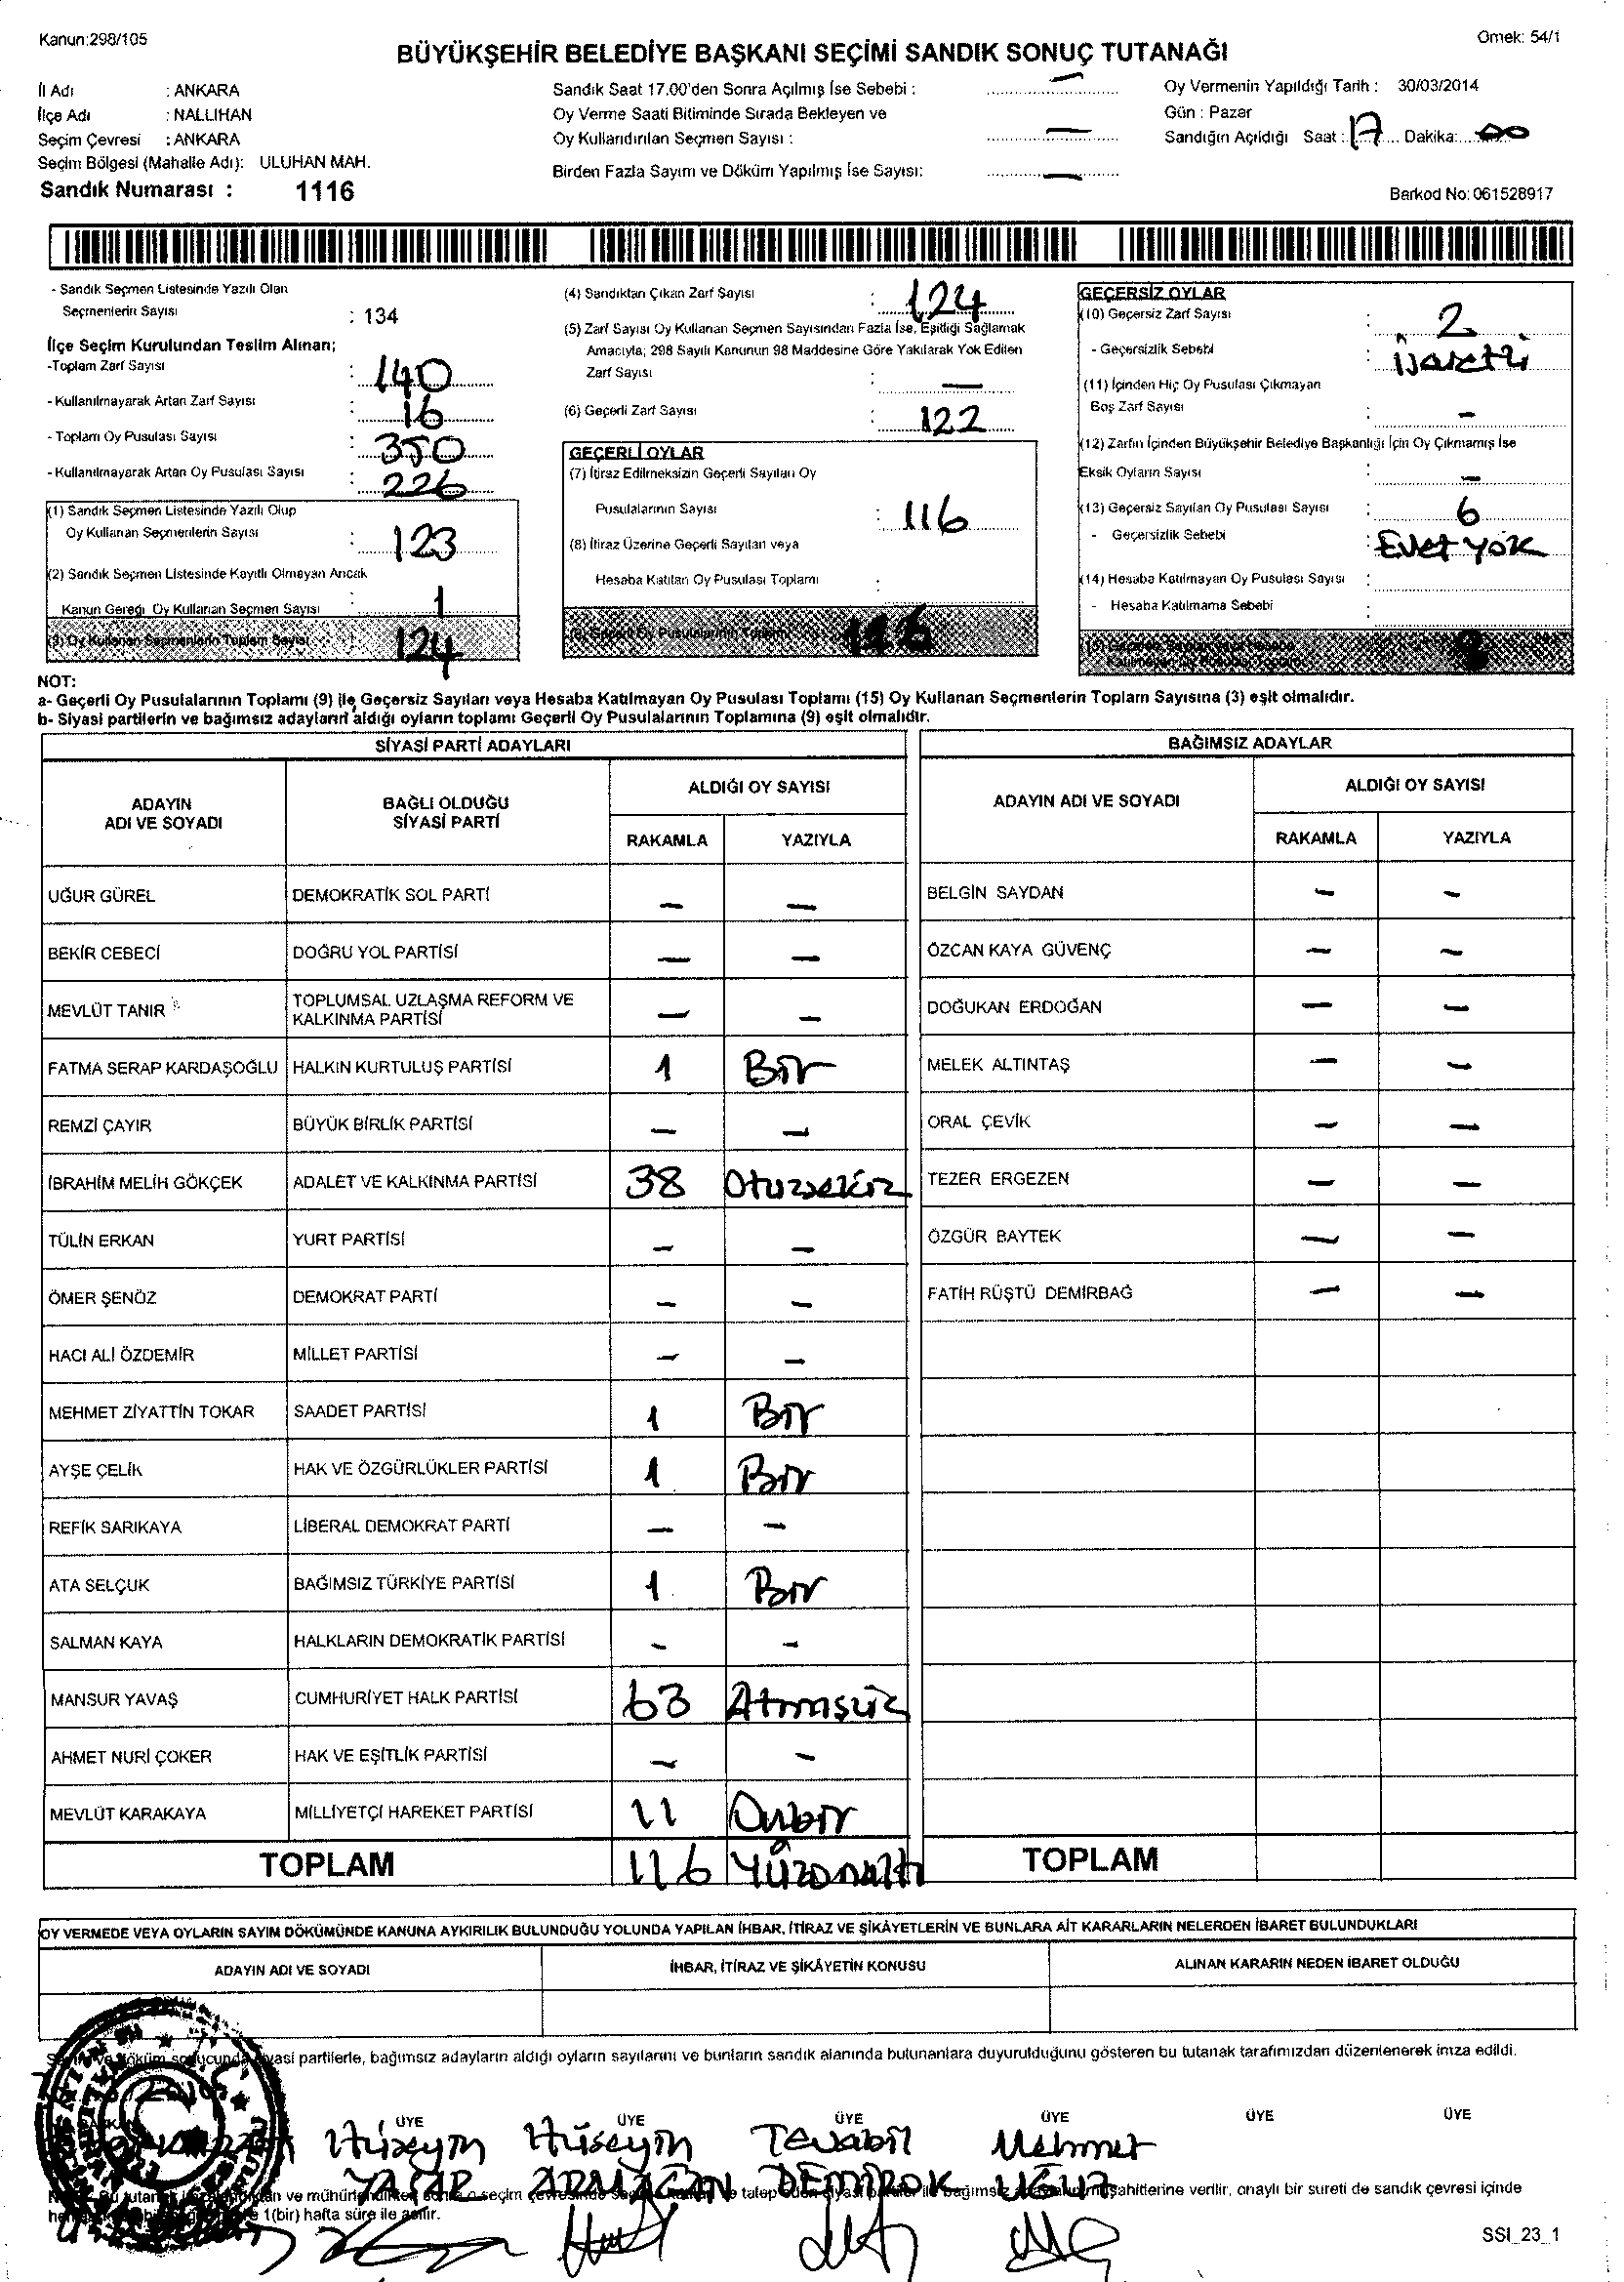 Kanun:298/105
BÜYÜKŞEHİR BELEDİYE BAŞKANI SEÇİMİ SANDIK SONUÇ TUTANAĞI
Örnek: 54/1
İl Adı : ANKARA
İlçe Adı : NALLIHAN
Seçim Çevresi : ANKARA
Seçim Bölgesi (Mahalle Adı): ULUHAN MAH.
Sandık Numarası : 1116
Sandık Saat 17.00'den Sonra Açılmış İse Sebebi : —
Oy Verme Saati Bitiminde Sırada Bekleyen ve
Oy Kullandırılan Seçmen Sayısı : —
Birden Fazla Sayım ve Döküm Yapılmış İse Sayısı: —
Oy Vermenin Yapıldığı Tarih : 30/03/2014
Gün : Pazar
Sandığın Açıldığı Saat : 17 Dakika: 00
Barkod No: 061528917
- Sandık Seçmen Listesinde Yazılı Olan
Seçmenlerin Sayısı : 134
İlçe Seçim Kurulundan Teslim Alınan;
-Toplam Zarf Sayısı : 140
- Kullanılmayarak Artan Zarf Sayısı : 16
- Toplam Oy Pusulası Sayısı : 350
- Kullanılmayarak Artan Oy Pusulası Sayısı : 226
(1) Sandık Seçmen Listesinde Yazılı Olup
Oy Kullanan Seçmenlerin Sayısı : 123
(2) Sandık Seçmen Listesinde Kayıtlı Olmayan Ancak
Kanun Gereği Oy Kullanan Seçmen Sayısı : 1
(3) Oy Kullanan Seçmenlerin Toplam Sayısı : 124
(4) Sandıktan Çıkan Zarf Sayısı : 124
(5) Zarf Sayısı Oy Kullanan Seçmen Sayısından Fazla İse, Eşitliği Sağlamak
Amacıyla; 298 Sayılı Kanunun 98 Maddesine Göre Yakılarak Yok Edilen
Zarf Sayısı : —
(6) Geçerli Zarf Sayısı : 122
GEÇERLİ OYLAR
(7) İtiraz Edilmeksizin Geçerli Sayılan Oy
Pusulalarının Sayısı : 116
(8) İtiraz Üzerine Geçerli Sayılan veya
Hesaba Katılan Oy Pusulası Toplamı :
(9) Geçerli Oy Pusulalarının Toplamı 116
GEÇERSİZ OYLAR
(10) Geçersiz Zarf Sayısı : 2
- Geçersizlik Sebebi : İşaretli
(11) İçinden Hiç Oy Pusulası Çıkmayan
Boş Zarf Sayısı : –
(12) Zarfın İçinden Büyükşehir Belediye Başkanlığı İçin Oy Çıkmamış İse
Eksik Oyların Sayısı : –
(13) Geçersiz Sayılan Oy Pusulası Sayısı : 6
- Geçersizlik Sebebi : Evet yok
(14) Hesaba Katılmayan Oy Pusulası Sayısı :
- Hesaba Katılmama Sebebi :
8
NOT:
a- Geçerli Oy Pusulalarının Toplamı (9) ile Geçersiz Sayılan veya Hesaba Katılmayan Oy Pusulası Toplamı (15) Oy Kullanan Seçmenlerin Toplam Sayısına (3) eşit olmalıdır.
b- Siyasi partilerin ve bağımsız adayların aldığı oyların toplamı Geçerli Oy Pusulalarının Toplamına (9) eşit olmalıdır.
SİYASİ PARTİ ADAYLARI
ADAYIN ADI VE SOYADI BAĞLI OLDUĞU SİYASİ PARTİ ALDIĞI OY SAYISI
RAKAMLA YAZIYLA
UĞUR GÜREL DEMOKRATİK SOL PARTİ – –
BEKİR CEBECİ DOĞRU YOL PARTİSİ – –
MEVLÜT TANIR TOPLUMSAL UZLAŞMA REFORM VE KALKINMA PARTİSİ – –
FATMA SERAP KARDAŞOĞLU HALKIN KURTULUŞ PARTİSİ 1 Bir
REMZİ ÇAYIR BÜYÜK BİRLİK PARTİSİ – –
İBRAHİM MELİH GÖKÇEK ADALET VE KALKINMA PARTİSİ 38 Otuzsekiz
TÜLİN ERKAN YURT PARTİSİ – –
ÖMER ŞENÖZ DEMOKRAT PARTİ – –
HACI ALİ ÖZDEMİR MİLLET PARTİSİ – –
MEHMET ZİYATTİN TOKAR SAADET PARTİSİ 1 Bir
AYŞE ÇELİK HAK VE ÖZGÜRLÜKLER PARTİSİ 1 Bir
REFİK SARIKAYA LİBERAL DEMOKRAT PARTİ – –
ATA SELÇUK BAĞIMSIZ TÜRKİYE PARTİSİ 1 Bir
SALMAN KAYA HALKLARIN DEMOKRATİK PARTİSİ – –
MANSUR YAVAŞ CUMHURİYET HALK PARTİSİ 63 Atmışüç
AHMET NURİ ÇOKER HAK VE EŞİTLİK PARTİSİ – –
MEVLÜT KARAKAYA MİLLİYETÇİ HAREKET PARTİSİ 11 Onbir
TOPLAM 116 Yüzonaltı
BAĞIMSIZ ADAYLAR
ADAYIN ADI VE SOYADI ALDIĞI OY SAYISI
RAKAMLA YAZIYLA
BELGİN SAYDAN – –
ÖZCAN KAYA GÜVENÇ – –
DOĞUKAN ERDOĞAN – –
MELEK ALTINTAŞ – –
ORAL ÇEVİK – –
TEZER ERGEZEN – –
ÖZGÜR BAYTEK – –
FATİH RÜŞTÜ DEMİRBAĞ – –
TOPLAM
OY VERMEDE VEYA OYLARIN SAYIM DÖKÜMÜNDE KANUNA AYKIRILIK BULUNDUĞU YOLUNDA YAPILAN İHBAR, İTİRAZ VE ŞİKÂYETLERİN VE BUNLARA AİT KARARLARIN NELERDEN İBARET BULUNDUKLARI
ADAYIN ADI VE SOYADI İHBAR, İTİRAZ VE ŞİKÂYETİN KONUSU ALINAN KARARIN NEDEN İBARET OLDUĞU
siyasi partilerle, bağımsız adayların aldığı oyların sayılarını ve bunların sandık alanında bulunanlara duyurulduğunu gösteren bu tutanak tarafımızdan düzenlenerek imza edildi.
ÜYE ÜYE ÜYE ÜYE ÜYE ÜYE
Hüseyin Hüseyin Tevabil Mehmet
YAŞAR ARMAĞAN DEMİROK UĞUZ
ve mühürlendikten sonra o seçim çevresinde talep eden siyasi partiler ile bağımsız müşahitlerine verilir, onaylı bir sureti de sandık çevresi içinde
1(bir) hafta süre ile asılır.
SSI_23_1